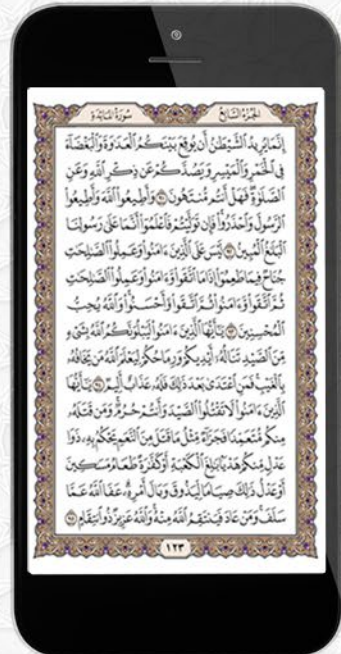 سُورَةُ المَائِدَةِ
الجُزْءُ السَّابِعُ
إِنَّمَا يُرِيدُ الشَّيْطَٰنُ أَن يُوقِعَ بَيْنَكُمُ الْعَدَٰوَةَ وَالْبَغْضَآءَ
فِي الْخَمْرِ وَالْمَيْسِرِ وَيَصُدَّكُمْ عَن ذِكْرِ اللَّهِ وَعَنِ
الصَّلَوٰةِ فَهَلْ أَنتُم مُّنتَهُونَ ٩١ وَأَطِيعُوا اللَّهَ وَأَطِيعُوا
الرَّسُولَ وَاحْذَرُوا فَإِن تَوَلَّيْتُمْ فَاعْلَمُوا أَنَّمَا عَلَىٰ رَسُولِنَا
الْبَلَٰغُ الْمُبِينُ ٩٢ لَيْسَ عَلَى الَّذِينَ ءَامَنُوا وَعَمِلُوا الصَّٰلِحَٰتِ
جُنَاحٌ فِيمَا طَعِمُوا إِذَا مَا اتَّقَوا وَّءَامَنُوا وَعَمِلُوا الصَّٰلِحَٰتِ
ثُمَّ اتَّقَوا وَّءَامَنُوا ثُمَّ اتَّقَوا وَّأَحْسَنُوا وَاللَّهُ يُحِبُّ
الْمُحْسِنِينَ ٩٣ يَٰٓأَيُّهَا الَّذِينَ ءَامَنُوا لَيَبْلُوَنَّكُمُ اللَّهُ بِشَيْءٍ
مِّنَ الصَّيْدِ تَنَالُهُ أَيْدِيكُمْ وَرِمَاحُكُمْ لِيَعْلَمَ اللَّهُ مَن يَخَافُهُ
بِالْغَيْبِ فَمَنِ اعْتَدَىٰ بَعْدَ ذَٰلِكَ فَلَهُ عَذَابٌ أَلِيمٌ ٩٤ يَٰٓأَيُّهَا
الَّذِينَ ءَامَنُوا لَا تَقْتُلُوا الصَّيْدَ وَأَنتُمْ حُرُمٌ وَمَن قَتَلَهُ
مِنكُم مُّتَعَمِّدًا فَجَزَآءٌ مِّثْلُ مَا قَتَلَ مِنَ النَّعَمِ يَحْكُمُ بِهِ ذَوَا
عَدْلٍ مِّنكُمْ هَدْيًا بَٰلِغَ الْكَعْبَةِ أَوْ كَفَّٰرَةٌ طَعَامُ مَسَٰكِينَ
أَوْ عَدْلُ ذَٰلِكَ صِيَامًا لِّيَذُوقَ وَبَالَ أَمْرِهِ عَفَا اللَّهُ عَمَّا
سَلَفَ وَمَنْ عَادَ فَيَنتَقِمُ اللَّهُ مِنْهُ وَاللَّهُ عَزِيزٌ ذُو انتِقَامٍ ٩٥
١٢٣